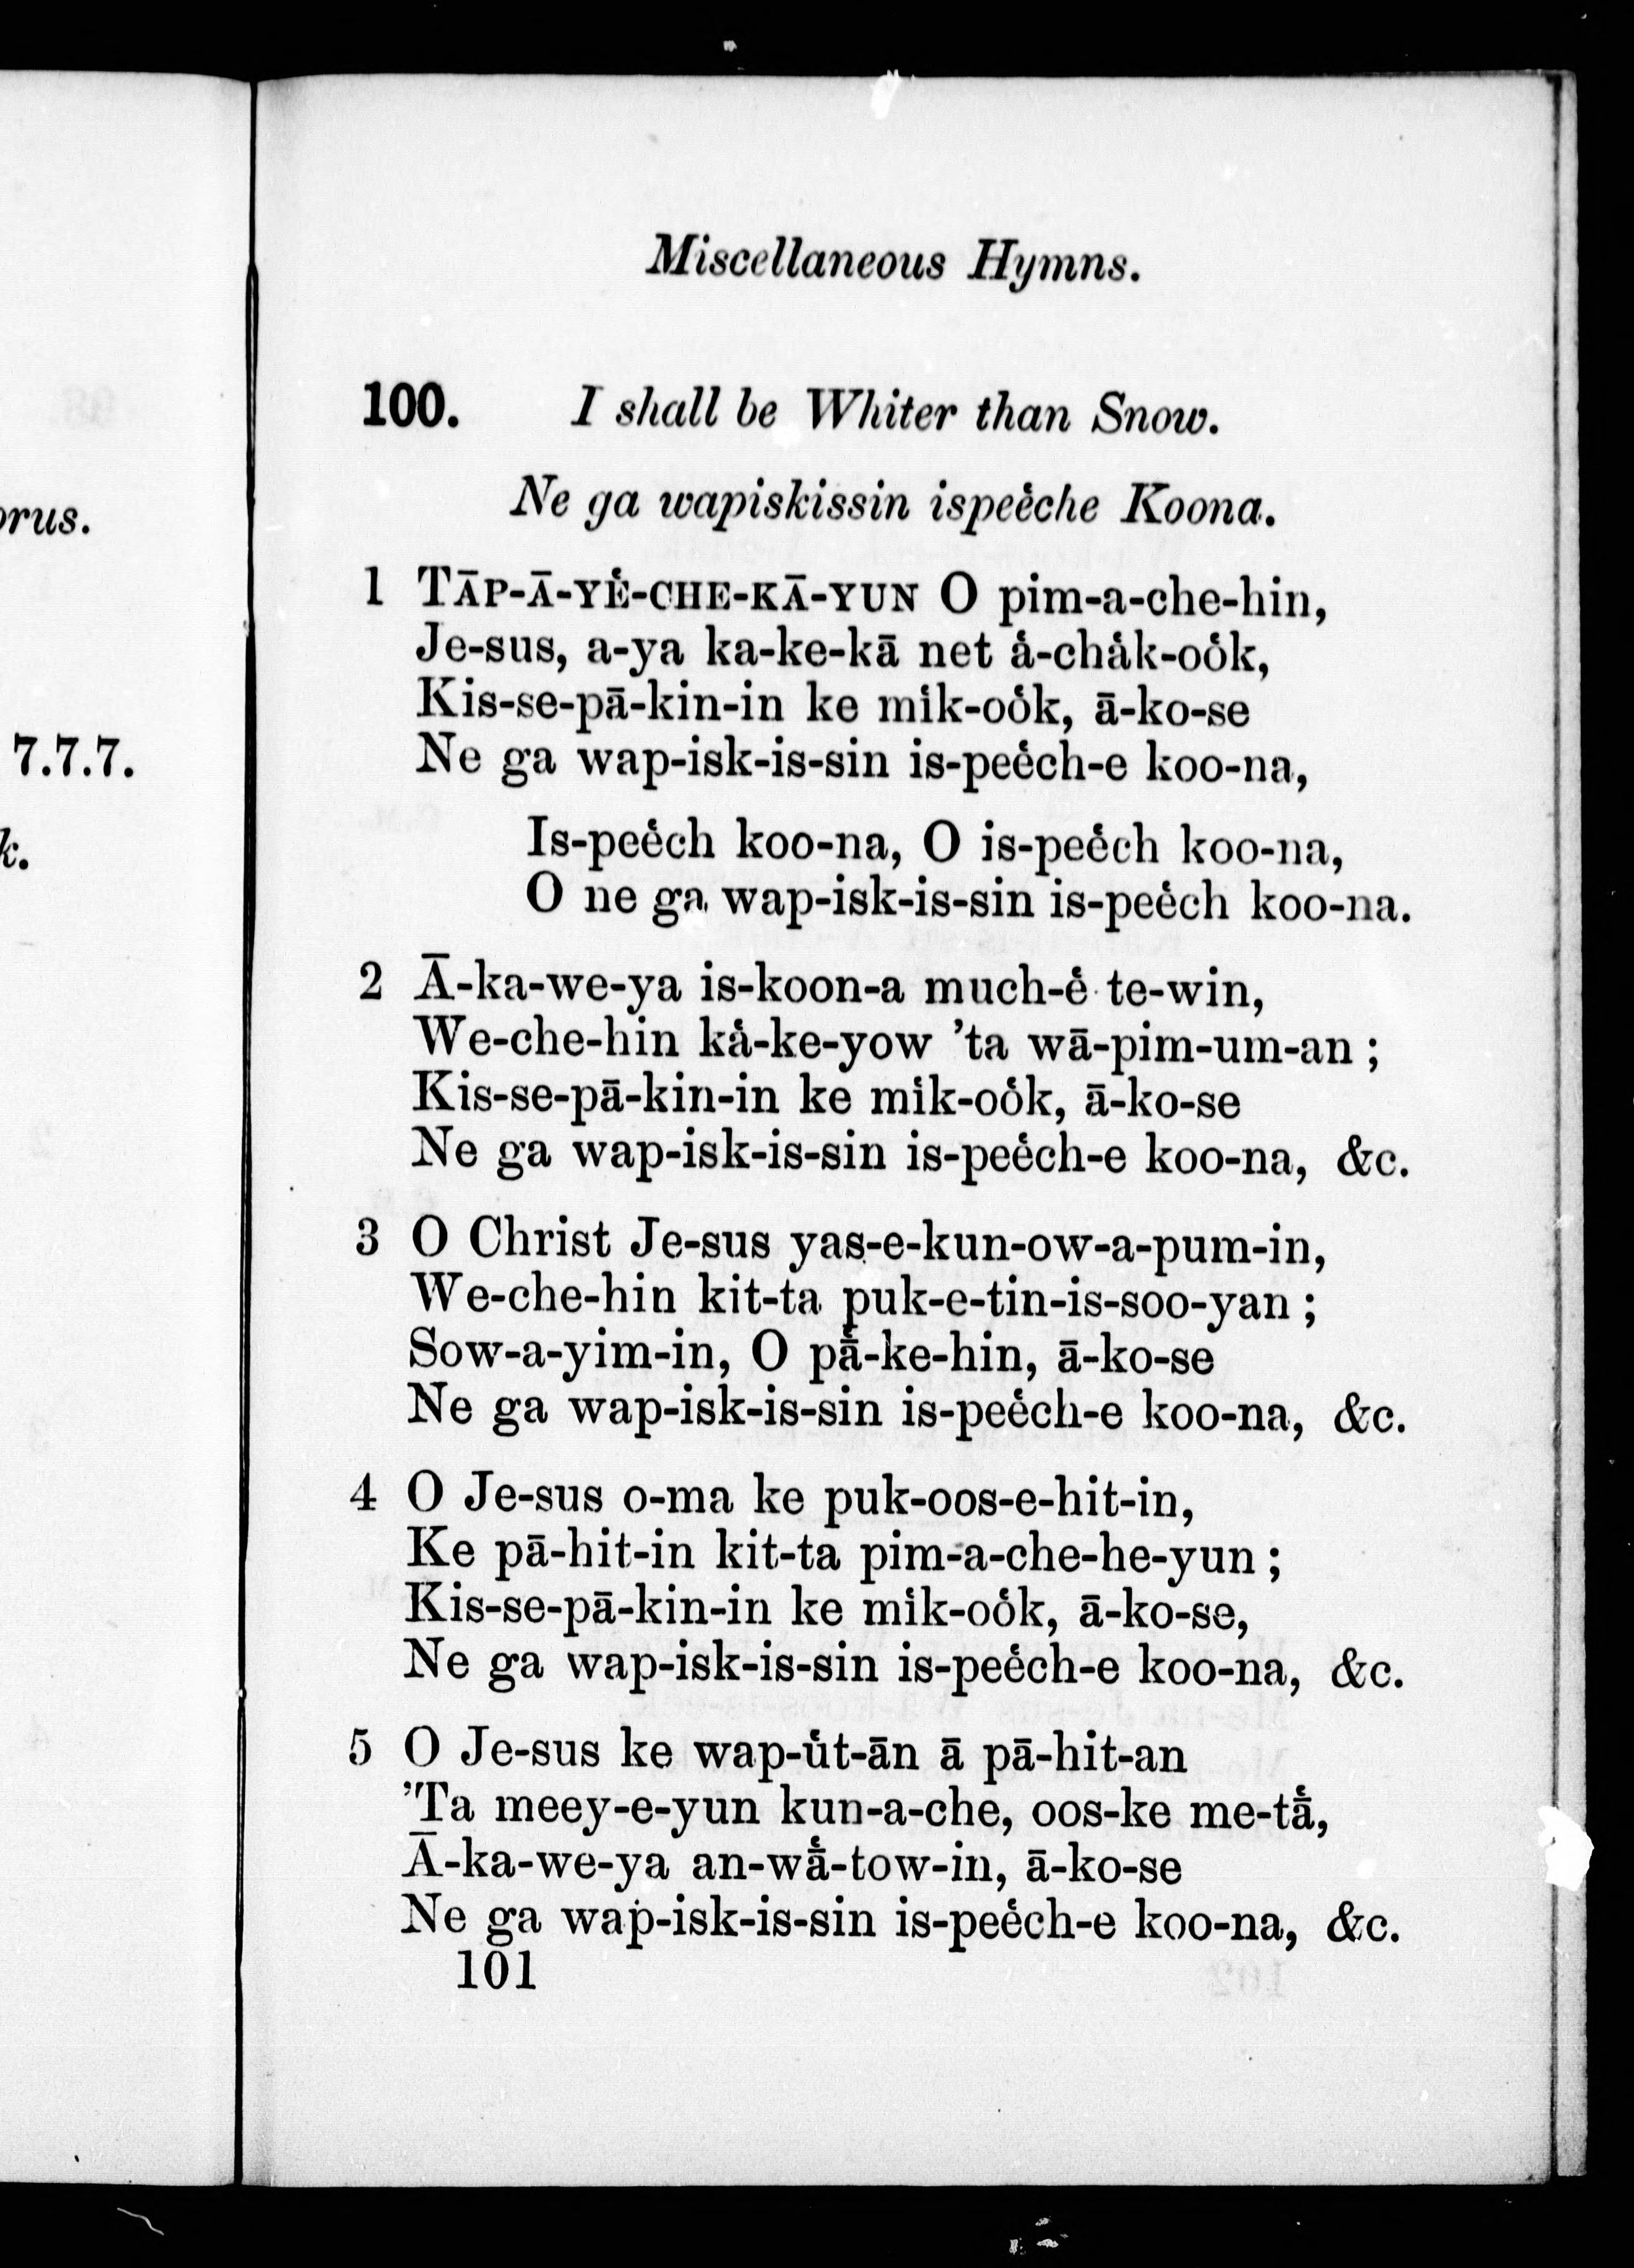 orus.
7.7.7.
k.
Miscellaneous Hymns.
100. I shall be Whiter than Snow.
Ne ga wapiskissin ispeėche Koona.
1 TĀP-Ā-YĖ-CHE-KĀ-YUN O pim-a-che-hin,
Je-sus, a-ya ka-ke-kā net ȧ-chȧk-oȯk,
Kis-se-pā-kin-in ke mik-oȯk, ā-ko-se
Ne ga wap-isk-is-sin is-peėch-e koo-na,
Is-peėch koo-na, O is-peėch koo-na,
O ne ga wap-isk-is-sin is-peėch koo-na.
2 Ā-ka-we-ya is-koon-a much-ė te-win,
We-che-hin kȧ-ke-yow ’ta wā-pim-um-an ;
Kis-se-pā-kin-in ke mik-oȯk, ā-ko-se
Ne ga wap-isk-is-sin is-peėch-e koo-na, &c.
3 O Christ Je-sus yas-e-kun-ow-a-pum-in,
We-che-hin kit-ta puk-e-tin-is-soo-yan ;
Sow-a-yim-in, O pā̇-ke-hin, ā-ko-se
Ne ga wap-isk-is-sin is-peėch-e koo-na, &c.
4 O Je-sus o-ma ke puk-oos-e-hit-in,
Ke pā-hit-in kit-ta pim-a-che-he-yun ;
Kis-se-pā-kin-in ke mik-oȯk, ā-ko-se,
Ne ga wap-isk-is-sin is-peėch-e koo-na, &c.
5 O Je-sus ke wap-u̇t-ān ā pā-hit-an
’Ta meey-e-yun kun-a-che, oos-ke me-tā̇,
Ā-ka-we-ya an-wā̇-tow-in, ā-ko-se
Ne ga wap-isk-is-sin is-peėch-e koo-na, &c.
101